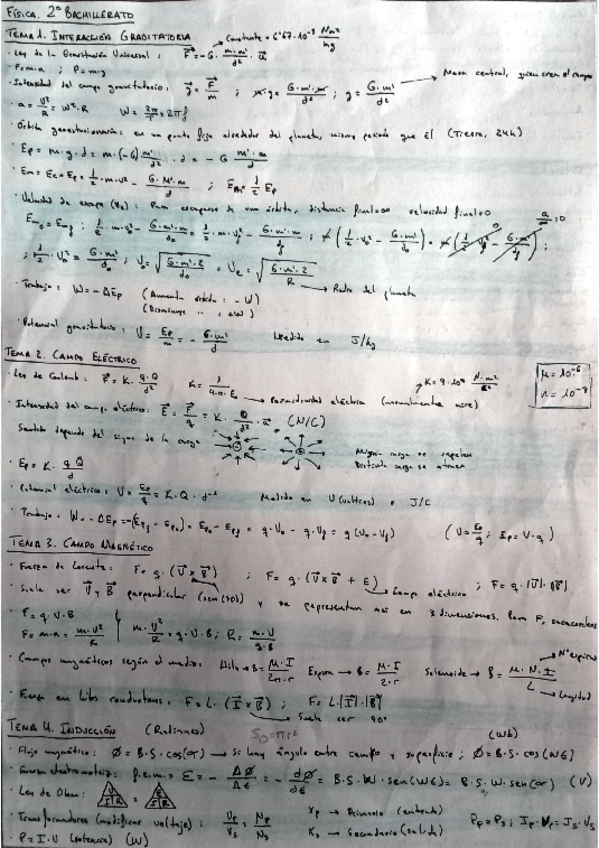 FÍSICA. 2º BACHILLERATO
TEMA 1. INTERACCIÓN GRAVITATORIA
Constante = 6'67·10⁻¹¹ N·m²/kg
· Ley de la Gravitación Universal: F = -G · m·m'/d² · u
· F=m·a ; P=m·g
Masa central, quien crea el campo
· Intensidad del campo gravitatorio: g = F/m ; m·g = G·m'·m/d² ; g = G·m'/d²
· a = v²/R = W²·R W = 2π/T = 2πf
· Órbita geoestacionaria: en un punto fijo alrededor del planeta, mismo periodo que él (Tierra, 24h)
· Ep = m·g·d = m·(-G) m'/d² · d = -G m'·m/d
· Em = Ec + Ep = 1/2·m·v² - G·M·m/d ; Em = 1/2 Ep
· Velocidad de escape (Ve): Para escaparse de una órbita, distancia final=∞ velocidad final=0 a/∞ = 0
Em₀ = Emf ; 1/2·m·v₀² - G·m'·m/d₀ = 1/2·m·vf² - G·m'·m/df ; m(1/2·v₀² - G·m'/d₀) = m(1/2·vf² - G·m'/df) ;
; 1/2·v₀² = G·m'/d₀ ; v₀ = √(G·m'·2/d₀) = Ve = √(G·m'·2/R) → Radio del planeta
· Trabajo: W = -ΔEp (Aumenta órbita: -W)
(Disminuye " : +W)
· Potencial gravitatorio: V = Ep/m = - G·m'/d Medido en J/kg
TEMA 2. CAMPO ELÉCTRICO
· Ley de Coulomb: F = K· q·Q/d² K = 1/4·π·E₀ → Permitividad eléctrica (normalmente aire)
K = 9·10⁹ N·m²/C²
µ = 10⁻⁶
n = 10⁻⁹
· Intensidad del campo eléctrico: E = F/q = K· Q/d² · u (N/C)
Sentido depende del signo de la carga
Misma carga se repelen
Distinta carga se atraen
· Ep = K· q·Q/d
· Potencial eléctrico: V = Ep/q = K·Q·d⁻¹ Medido en V (voltios) o J/C
· Trabajo: W = -ΔEp = -(Epf - Ep₀) = Ep₀ - Epf = q·V₀ - q·Vf = q(V₀ - Vf) (V = Ep/q ; Ep = V·q)
TEMA 3. CAMPO MAGNÉTICO
· Fuerza de Lorentz: F = q·(V x B) ; F = q·(V x B + E) → Campo eléctrico ; F = q·|V|·|B|
· Suele ser V y B perpendicular (sen(90)) y se representan así en 3 dimensiones. Para F, sacacorchos
· F = q·V·B
F = m·a = m·V²/R
m·V²/R = q·V·B ; R = m·V/q·B
· Campos magnéticos según el medio: Hilo → B = M·I/2π·r Espira → B = M·I/2·r Solenoide → B = M·N·I/L
Nº espiras
Longitud
· Fuerza en hilos conductores: F = L·(I x B) ; F = L·|I|·|B|
Suele ser 90º
TEMA 4. INDUCCIÓN (Radianes) S₀ = πr² (Wb)
· Flujo magnético: Ø = B·S·cos(α) → Si hay ángulo entre campo y superficie ; Ø = B·S·cos(Wt)
· Fuerza electromotriz: f.e.m = E = - ΔØ/Δt = - dØ/dt = B·S·W·sen(Wt) = B·S·W·sen(α) (V)
· Ley de Ohm: V I R = E I R
· Transformadores (modificar voltaje): Vp/Vs = Np/Ns
Xp → Primario (entrada)
Xs → Secundario (salida)
Pp = Ps ; Ip·Vp = Is·Vs
· P = I·V (potencia) (W)